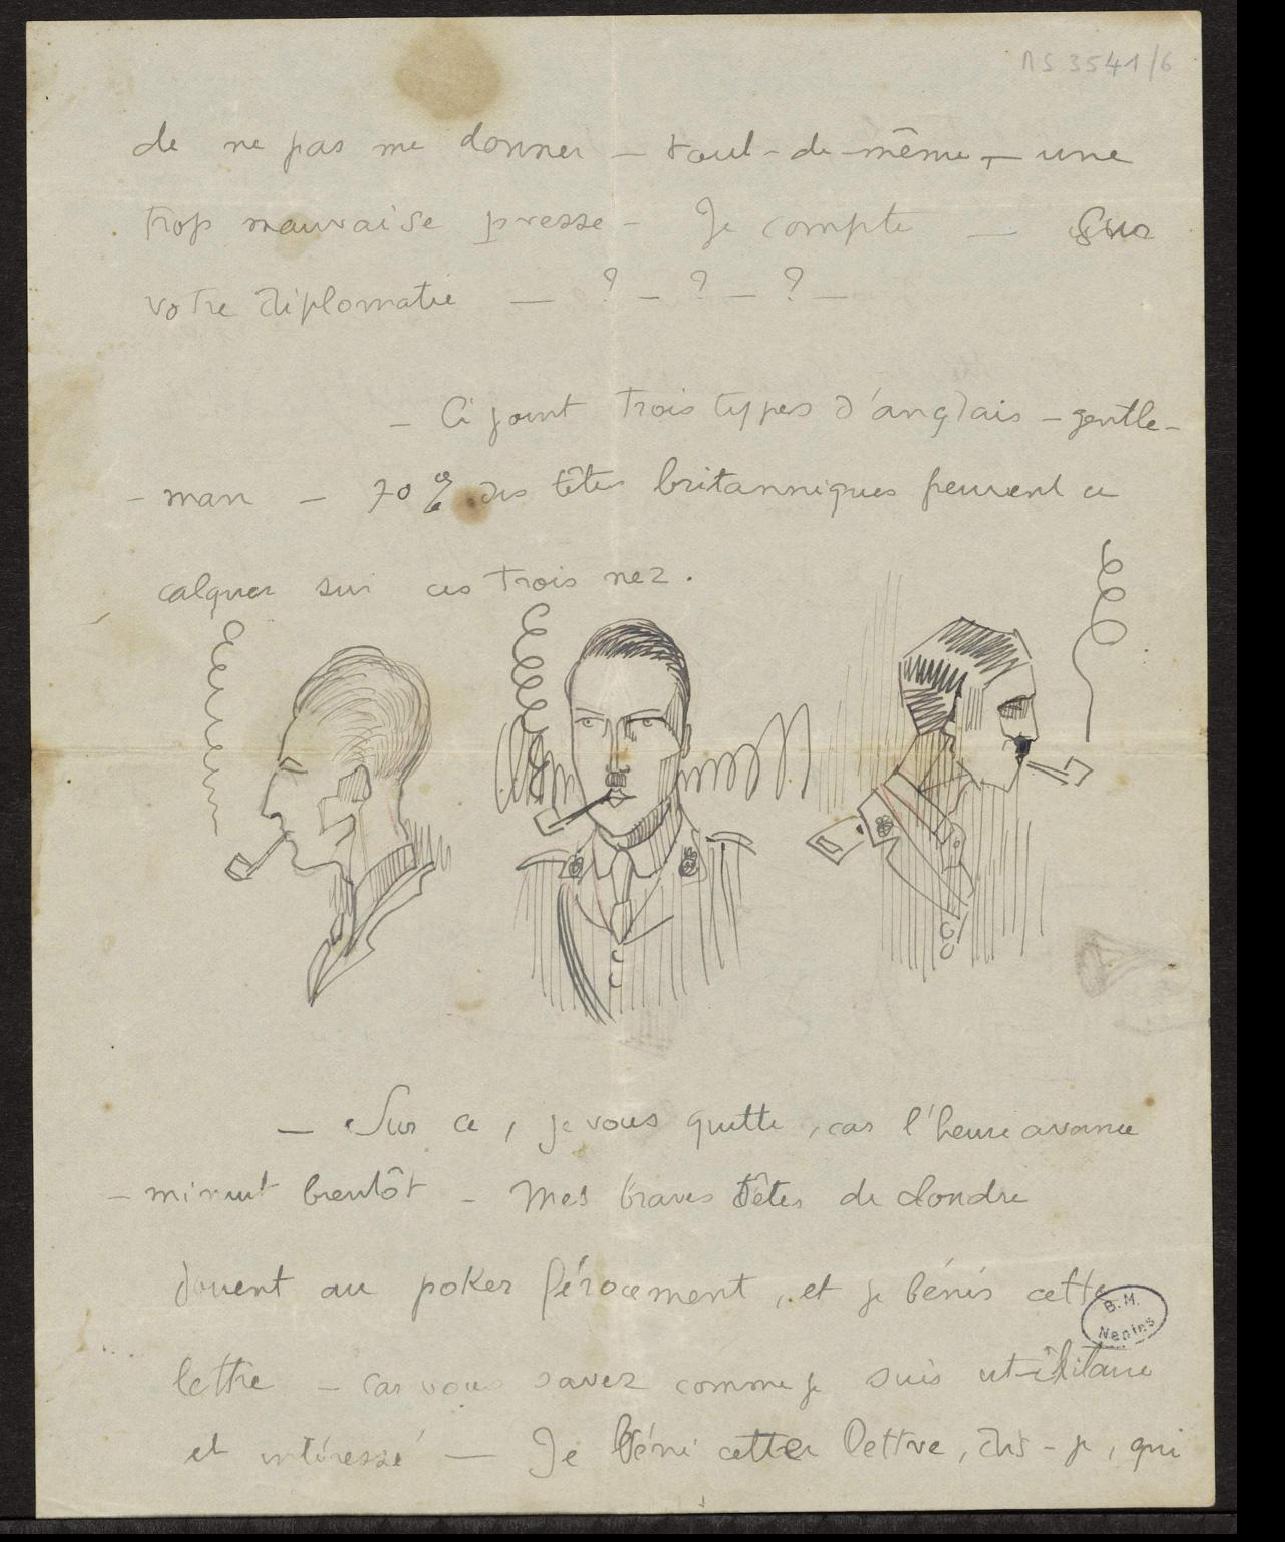 MS 3541/6
de ne pas me donner – tout-de-même – une
trop mauvaise presse – Je compte – sur
votre diplomatie – ? – ? – ? –
– Ci joint trois types d'anglais – gentle-
– man – 70 % des têtes britanniques peuvent ce
calquer sur ces trois nez.
– Sur ce, je vous quitte, car l'heure avance
– minuit bientôt – Mes braves têtes de
jouent au poker férocement, et je bénis cette
B.M.
Nantes
lettre – car vous savez comme je suis utilitaire
et intéressé – Je béni cette lettre, dis-je, qui